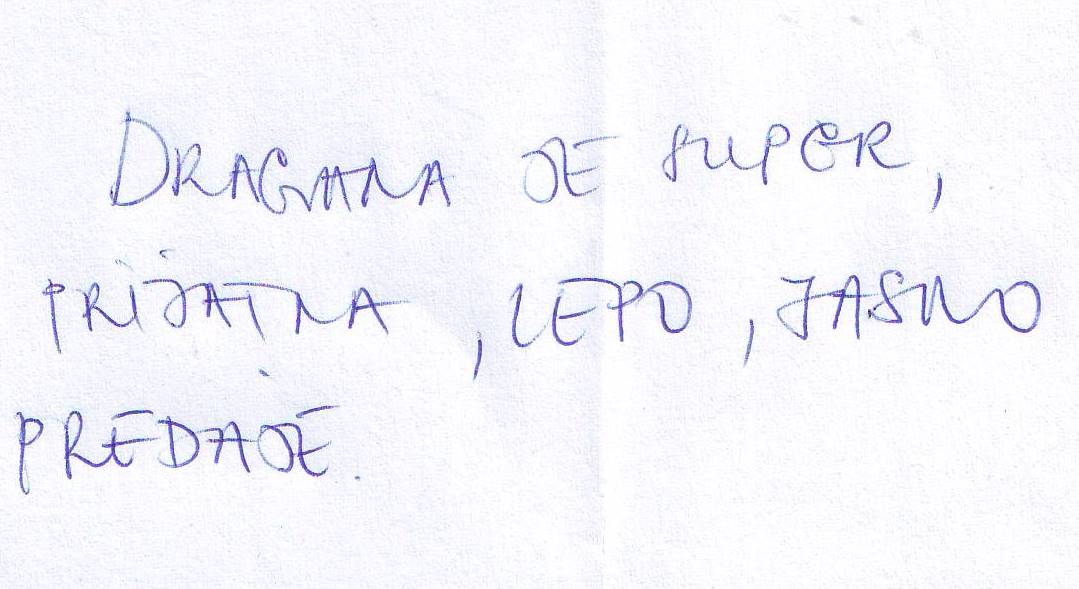 DRAGANA JE SUPER,
PRIJATNA, LEPO, JASNO
PREDAJE.